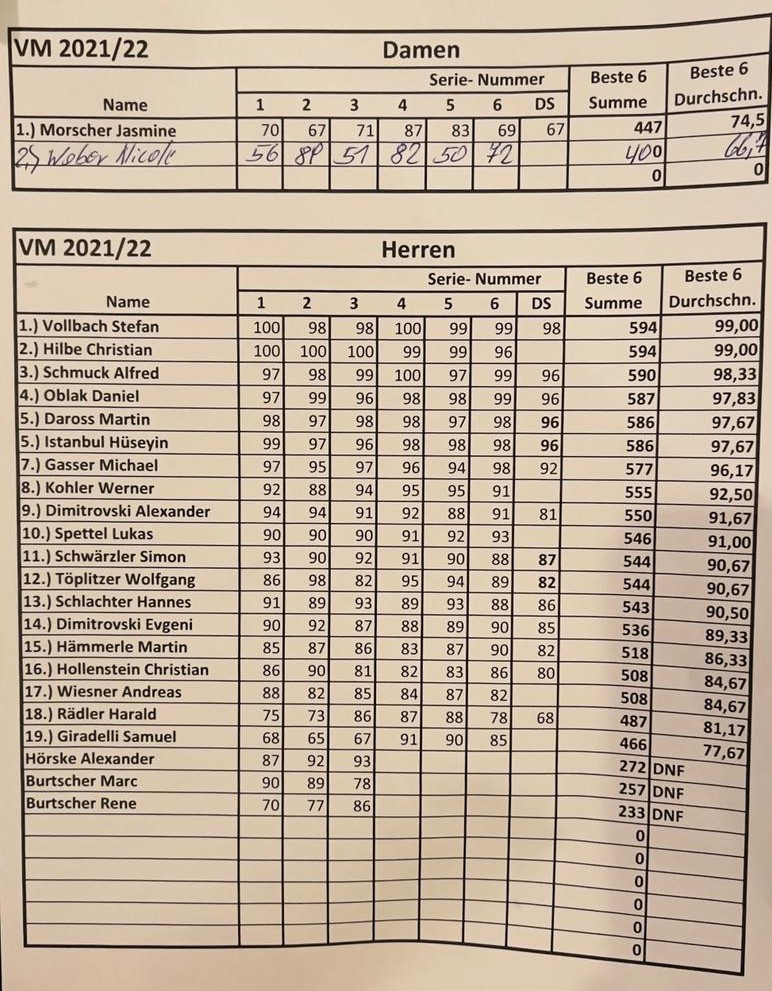 VM 2021/22 Damen
Serie- Nummer Beste 6 Beste 6
Name 1 2 3 4 5 6 DS Summe Durchschn.
1.) Morscher Jasmine 70 67 71 87 83 69 67 447 74,5
2.) Weber Nicole 56 89 51 82 50 72 400 66,7
0 0
VM 2021/22 Herren
Serie- Nummer Beste 6 Beste 6
Name 1 2 3 4 5 6 DS Summe Durchschn.
1.) Vollbach Stefan 100 98 98 100 99 99 98 594 99,00
2.) Hilbe Christian 100 100 100 99 99 96 594 99,00
3.) Schmuck Alfred 97 98 99 100 97 99 96 590 98,33
4.) Oblak Daniel 97 99 96 98 98 99 96 587 97,83
5.) Daross Martin 98 97 98 98 97 98 96 586 97,67
5.) Istanbul Hüseyin 99 97 96 98 98 98 96 586 97,67
7.) Gasser Michael 97 95 97 96 94 98 92 577 96,17
8.) Kohler Werner 92 88 94 95 95 91 555 92,50
9.) Dimitrovski Alexander 94 94 91 92 88 91 81 550 91,67
10.) Spettel Lukas 90 90 90 91 92 93 546 91,00
11.) Schwärzler Simon 93 90 92 91 90 88 87 544 90,67
12.) Töplitzer Wolfgang 86 98 82 95 94 89 82 544 90,67
13.) Schlachter Hannes 91 89 93 89 93 88 86 543 90,50
14.) Dimitrovski Evgeni 90 92 87 88 89 90 85 536 89,33
15.) Hämmerle Martin 85 87 86 83 87 90 82 518 86,33
16.) Hollenstein Christian 86 90 81 82 83 86 80 508 84,67
17.) Wiesner Andreas 88 82 85 84 87 82 508 84,67
18.) Rädler Harald 75 73 86 87 88 78 68 487 81,17
19.) Giradelli Samuel 68 65 67 91 90 85 466 77,67
Hörske Alexander 87 92 93 272 DNF
Burtscher Marc 90 89 78 257 DNF
Burtscher Rene 70 77 86 233 DNF
0
0
0
0
0
0